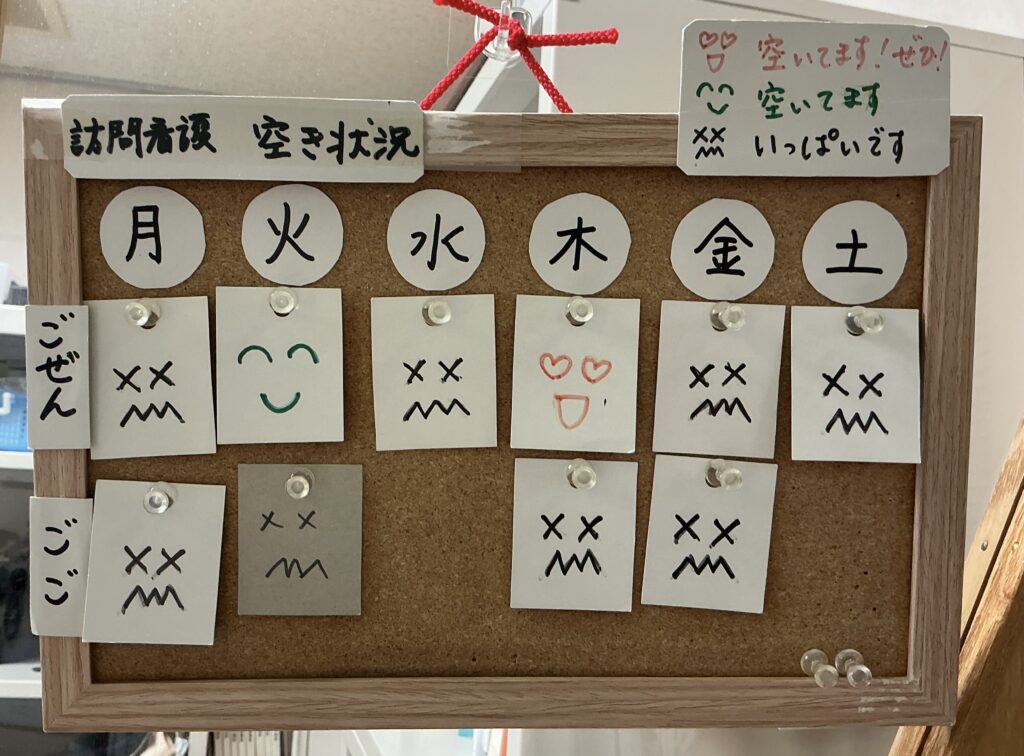 訪問看護 空き状況
空いてます!ぜひ!
空いてます
いっぱいです
月 火 水 木 金 土
ごぜん
ごご